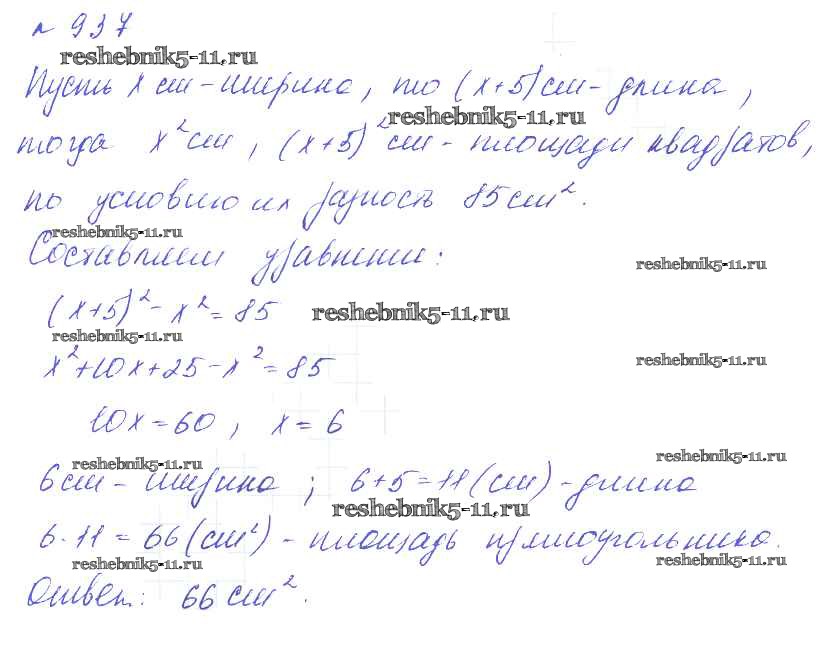 № 937
reshebnik5-11.ru
Пусть x см - ширина, то (x+5) см - длина,
reshebnik5-11.ru
тогда x² см, (x+5)² см - площади квадратов,
по условию их разность 85 см².
reshebnik5-11.ru
Составляем уравнение:
reshebnik5-11.ru
(x+5)² - x² = 85
reshebnik5-11.ru
reshebnik5-11.ru
x² + 10x + 25 - x² = 85
reshebnik5-11.ru
10x = 60, x = 6
reshebnik5-11.ru
reshebnik5-11.ru
6 см - ширина; 6+5=11 (см) - длина
reshebnik5-11.ru
6·11 = 66 (см²) - площадь прямоугольника.
reshebnik5-11.ru
reshebnik5-11.ru
Ответ: 66 см².